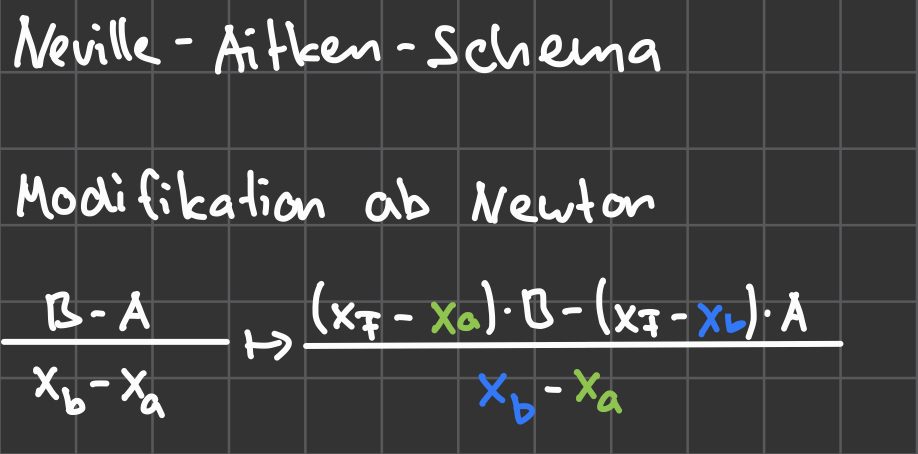 Neville-Aitken-Schema
Modifikation ab Newton
B-A / x_b - x_a ↦ (x_7 - x_a)·B-(x_7 - x_b)·A / x_b - x_a